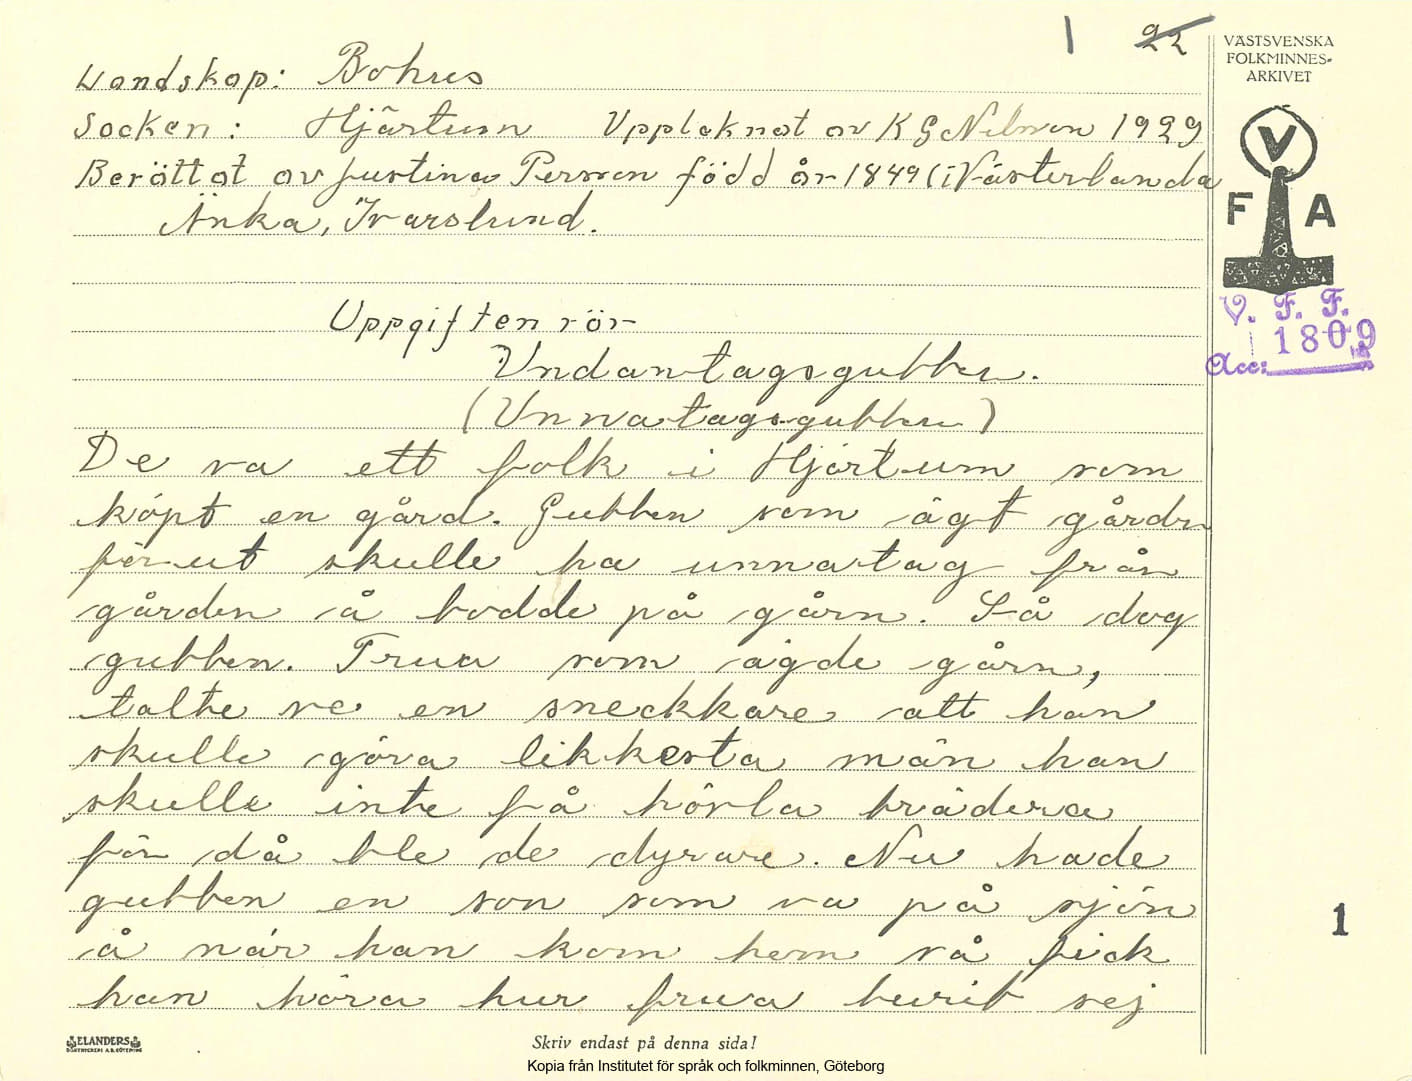 1 22
VÄSTSVENSKA
FOLKMINNES-
ARKIVET
Landskap: Bohus
Socken: Hjärtum Upptecknat av K G Nilsson 1929
Berättat av Justina Persson född år 1849 (i Västerlanda
Änka, Ivarslund.
V
F A
V. F. F.
Acc: 1809
Uppgiften rör
Undantagsgubben.
(Unnatagsgubben)
De va ett folk i Hjärtum som
köpt en gård. Gubben som ägt gårdn
förut skulle ha unnatag från
gården å bodde på gårn. Så dog
gubben. Frua som ägde gårn,
talte ve en sneckkare att han
skulle göra likkesta män han
skulle inte få hövla brädera
för då ble de dyrare. Nu hade
gubben en son som va på sjön
å när han kom hem så fick
han höra hur frua burit sej
1
ELANDERS
BOKTRYCKERI A.B. GÖTEBORG
Skriv endast på denna sida!
Kopia från Institutet för språk och folkminnen, Göteborg